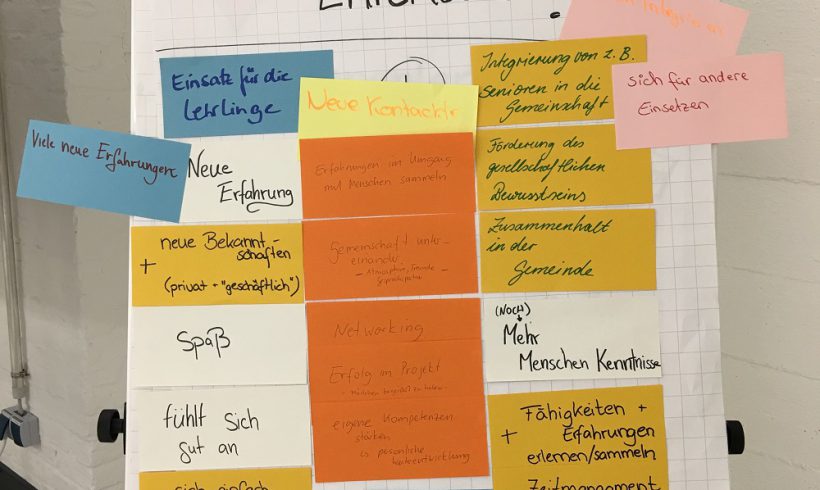 Integrieren
Einsatz für die
Lehrlinge
Neue Kontacktr
Integrierung von z.B.
Senioren in die
Gemeinschaft
sich für andere
Einsetzen
Viele neue Erfahrungen
Neue
Erfahrung
Erfahrungen im Umgang
mit Menschen sammeln
Förderung des
gesellschaftlichen
Bewusstseins
+ neue Bekannt-
schaften
(privat + "geschäftlich")
Gemeinschaft unter-
einander
Zusammenhalt
in der
Gemeinde
Spaß
Networking
Erfolg im Projekt
(NOCH)
Mehr
Menschen Kenntnisse
fühlt sich
gut an
eigene Kompetenzen
stärken
+ Fähigkeiten +
Erfahrungen
erlernen/sammeln
sich einfach
Zeitmanagement